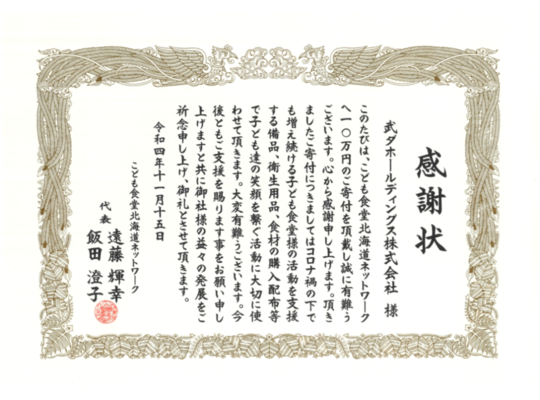 感謝状
武ダホールディングス株式会社 様
このたびは、こども食堂北海道ネットワーク
へ一〇万円のご寄付を頂戴し誠に有難う
ございます。心から感謝申し上げます。頂き
ましたご寄付につきましてはコロナ禍の下で
も増え続ける子ども食堂様の活動を支援
する備品、衛生用品、食材の購入配布等
で子ども達の笑顔を繋ぐ活動に大切に使
わせて頂きます。大変有難うございます。今
後ともご支援を賜ります事をお願い申し
上げますと共に御社様の益々の発展をご
祈念申し上げ、御礼とさせて頂きます。
令和四年十一月十五日
こども食堂北海道ネットワーク
代表 遠藤 輝幸
飯田 澄子